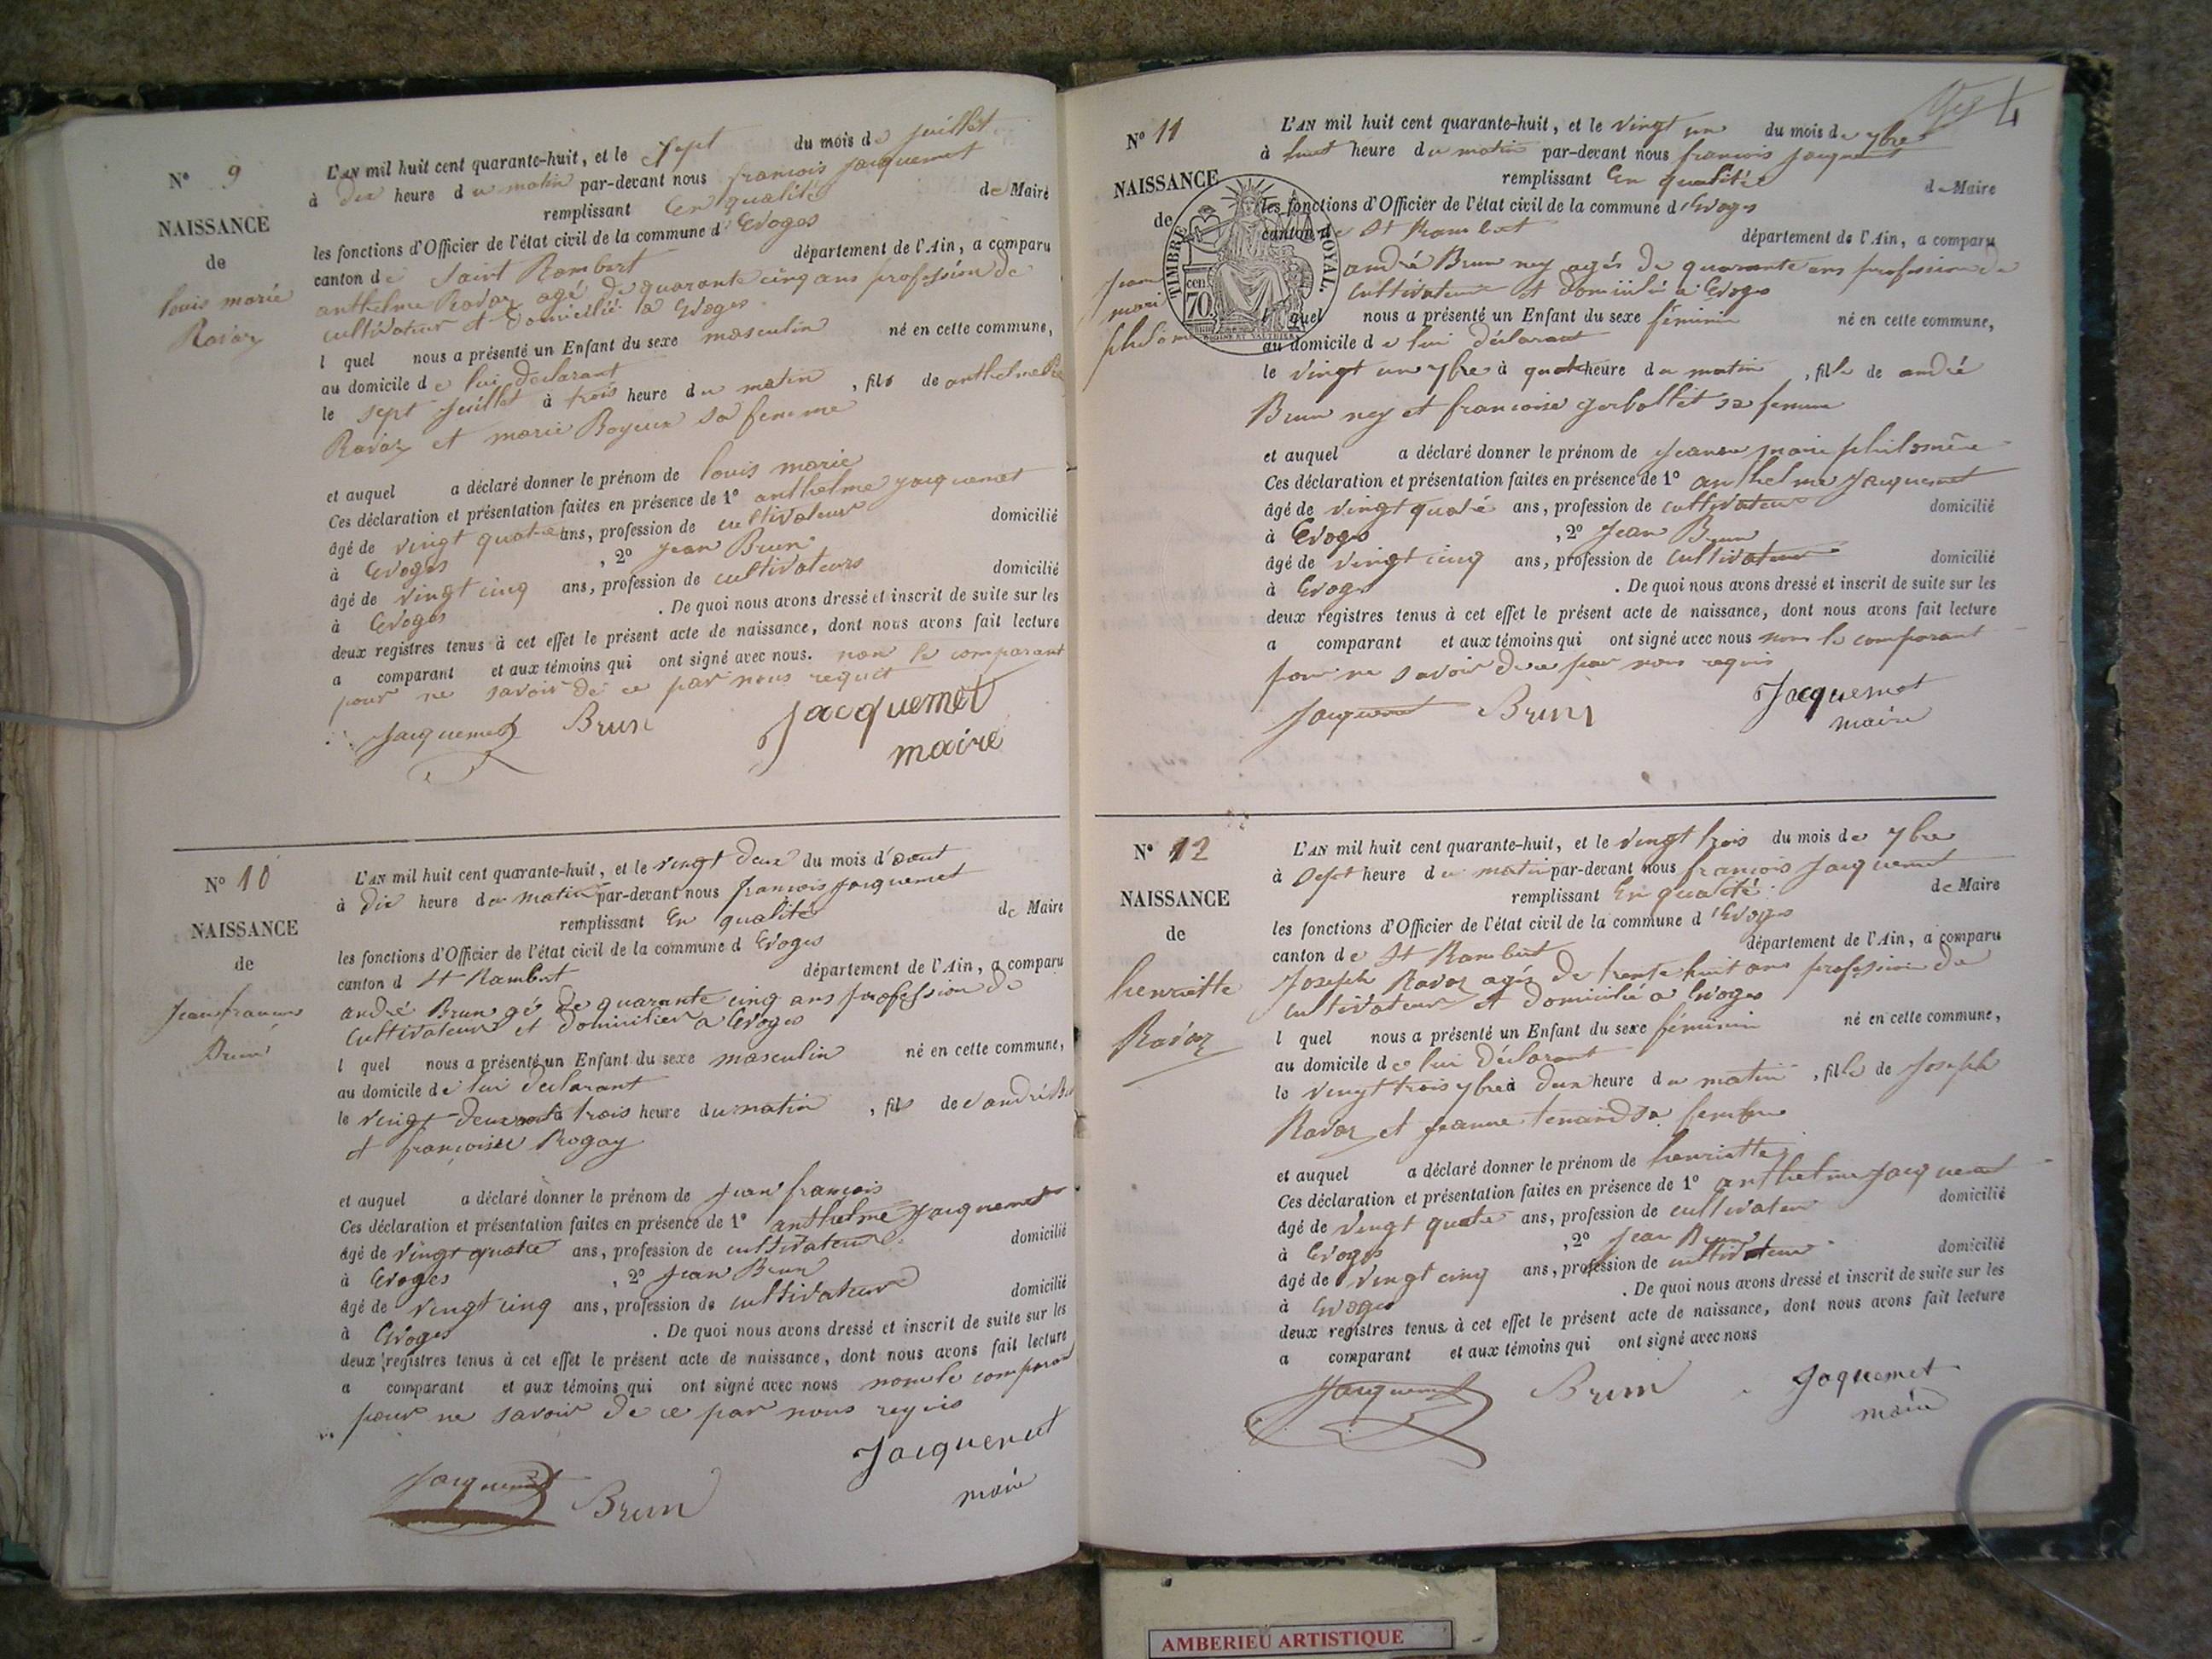 N° 9
NAISSANCE
de
louis marie
Ravaz
L'AN mil huit cent quarante-huit, et le sept du mois de juillet
à dix heure du matin par-devant nous francois jacquemet
remplissant En qualité de Maire
les fonctions d'Officier de l'état civil de la commune d'Evoges
canton de Saint Rambert département de l'Ain, a comparu
anthelme Ravaz agé de quarante cinq ans profession de
cultivateur et domicilié a Evoges
l quel nous a présenté un Enfant du sexe masculin né en cette commune,
au domicile de lui declarant
le sept juillet à trois heure du matin , fils de anthelme
Ravaz et marie Boyeux sa femme
et auquel a déclaré donner le prénom de louis marie
Ces déclaration et présentation faites en présence de 1° anthelme jacquemet
âgé de vingt quatre ans, profession de cultivateur domicilié
à Evoges , 2° jean Brun
âgé de vingt cinq ans, profession de cultivateurs domicilié
à Evoges . De quoi nous avons dressé et inscrit de suite sur les
deux registres tenus à cet effet le présent acte de naissance, dont nous avons fait lecture
a comparant et aux témoins qui ont signé avec nous. non le comparant
pour ne savoir de ce par nous requit
Jacquemet Brun Jacquemet
maire
N° 10
NAISSANCE
de
Jean francois
Brun
L'AN mil huit cent quarante-huit, et le vingt deux du mois d'aout
à dix heure du matin par-devant nous francois jacquemet
remplissant En qualité de Maire
les fonctions d'Officier de l'état civil de la commune d Evoges
canton d St Rambert département de l'Ain, a comparu
andré Brun gé de quarante cinq ans profession de
Cultivateur et domicilier a Evoges
l quel nous a présenté un Enfant du sexe masculin né en cette commune,
au domicile de lui declarant
le vingt deux aout à trois heure du matin , fils de d'andré
et françoise Rogay
et auquel a déclaré donner le prénom de jean françois
Ces déclaration et présentation faites en présence de 1° anthelme Jacquemet
âgé de vingt quatre ans, profession de cultivateur domicilié
à Evoges , 2° Jean Brun
âgé de vingt cinq ans, profession de cultivateur domicilié
à Evoges . De quoi nous avons dressé et inscrit de suite sur les
deux registres tenus à cet effet le présent acte de naissance, dont nous avons fait lecture
a comparant et aux témoins qui ont signé avec nous non le comparant
pour ne savoir de ce par nous requis
Jacquemet Brun Jacquemet
maire
4
N° 11
NAISSANCE
de
Jean
mari
philom
TIMBRE ROYAL.
cen
70
L'AN mil huit cent quarante-huit, et le vingt un du mois de 7bre
à huit heure du matin par-devant nous francois jacquemet
remplissant En qualitée de Maire
les fonctions d'Officier de l'état civil de la commune d'Evoges
canton de St Rambert département de l'Ain, a comparu
andré Brun ney agés de quarante ans profession de
cultivateur et domicilié a Evoges
l quel nous a présenté un Enfant du sexe féminin né en cette commune,
au domicile de lui déclarant
le vingt un 7bre à quatre heure du matin , fille de andré
Brun ney et francoise gerbollet sa femme
et auquel a déclaré donner le prénom de jeanne marie philomène
Ces déclaration et présentation faites en présence de 1° anthelme Jacquemet
âgé de vingt quatre ans, profession de cultivateur domicilié
à Evoges , 2° Jean Brun
âgé de vingt cinq ans, profession de cultivateur domicilié
à Evoges . De quoi nous avons dressé et inscrit de suite sur les
deux registres tenus à cet effet le présent acte de naissance, dont nous avons fait lecture
a comparant et aux témoins qui ont signé avec nous non le comparant
pour ne savoir de ce par nous requis
Jacquemet Brun Jacquemet
maire
N° 12
NAISSANCE
de
henriette
Ravaz
L'AN mil huit cent quarante-huit, et le vingt trois du mois de 7bre
à Sept heure du matin par-devant nous francois Jacquemet
remplissant En qualité de Maire
les fonctions d'Officier de l'état civil de la commune d'Evoges
canton de St Rambert département de l'Ain, a comparu
Joseph Ravaz agé de trente huit ans profession de
cultivateur et domicilié a Evoges
l quel nous a présenté un Enfant du sexe féminin né en cette commune,
au domicile de lui déclarant
le vingt trois 7bre à deux heure du matin , fille de Joseph
Ravaz et jeanne tenand sa femme
et auquel a déclaré donner le prénom de henriette
Ces déclaration et présentation faites en présence de 1° anthelme Jacquemet
âgé de vingt quatre ans, profession de cultivateur domicilié
à Evoges , 2° Jean Brun
âgé de vingt cinq ans, profession de cultivateur domicilié
à Evoges . De quoi nous avons dressé et inscrit de suite sur les
deux registres tenus à cet effet le présent acte de naissance, dont nous avons fait lecture
a comparant et aux témoins qui ont signé avec nous
Jacquemet Brun Jaquemet
maire
AMBERIEU ARTISTIQUE